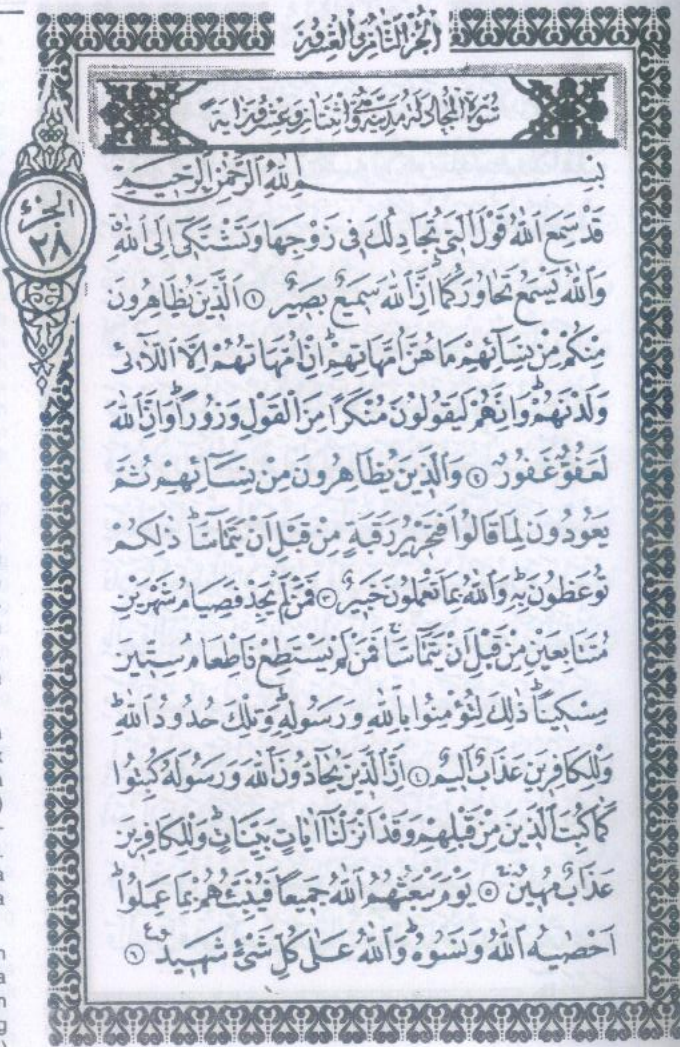 الجزء الثامن والعشرون
سورة المجادلة مدنية وهي اثنتان وعشرون اية
الجزء
٢٨
بسم الله الرحمن الرحيم
قَدْ سَمِعَ اللهُ قَوْلَ الَّتِي تُجَادِلُكَ فِي زَوْجِهَا وَتَشْتَكِي اِلَى اللهِ
وَاللهُ يَسْمَعُ تَحَاوُرَكُمَا اِنَّ اللهَ سَمِيعٌ بَصِيرٌ ١ اَلَّذِينَ يُظَاهِرُونَ
مِنْكُمْ مِنْ نِسَائِهِمْ مَا هُنَّ اُمَّهَاتِهِمْ اِنْ اُمَّهَاتُهُمْ اِلَّا اللَّائِي
وَلَدْنَهُمْ وَاِنَّهُمْ لَيَقُولُونَ مُنْكَرًا مِنَ الْقَوْلِ وَزُورًا وَاِنَّ اللهَ
لَعَفُوٌّ غَفُورٌ ٢ وَالَّذِينَ يُظَاهِرُونَ مِنْ نِسَائِهِمْ ثُمَّ
يَعُودُونَ لِمَا قَالُوا فَتَحْرِيرُ رَقَبَةٍ مِنْ قَبْلِ اَنْ يَتَمَاسَّا ذٰلِكُمْ
تُوعَظُونَ بِهِ وَاللهُ بِمَا تَعْمَلُونَ خَبِيرٌ ٣ فَمَنْ لَمْ يَجِدْ فَصِيَامُ شَهْرَيْنِ
مُتَتَابِعَيْنِ مِنْ قَبْلِ اَنْ يَتَمَاسَّا فَمَنْ لَمْ يَسْتَطِعْ فَاِطْعَامُ سِتِّينَ
مِسْكِينًا ذٰلِكَ لِتُؤْمِنُوا بِاللهِ وَرَسُولِهِ وَتِلْكَ حُدُودُ اللهِ
وَلِلْكَافِرِينَ عَذَابٌ اَلِيمٌ ٤ اِنَّ الَّذِينَ يُحَادُّونَ اللهَ وَرَسُولَهُ كُبِتُوا
كَمَا كُبِتَ الَّذِينَ مِنْ قَبْلِهِمْ وَقَدْ اَنْزَلْنَا اٰيَاتٍ بَيِّنَاتٍ وَلِلْكَافِرِينَ
عَذَابٌ مُهِينٌ ٥ يَوْمَ يَبْعَثُهُمُ اللهُ جَمِيعًا فَيُنَبِّئُهُمْ بِمَا عَمِلُوا
اَحْصٰيهُ اللهُ وَنَسُوهُ وَاللهُ عَلٰى كُلِّ شَيْءٍ شَهِيدٌ ٦